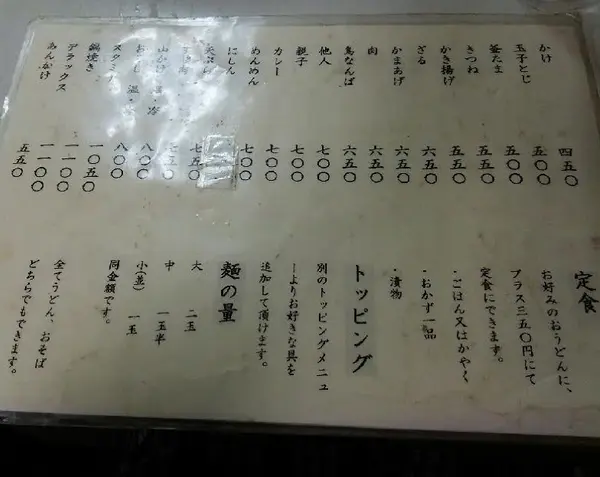 かけ 四五〇
玉子とじ 五〇〇
釜たま 五〇〇
きつね 五五〇
かき揚げ 五五〇
ざる 六五〇
かまあげ 六五〇
肉 六五〇
鳥なんば 六五〇
他人 七〇〇
親子 七〇〇
カレー 七〇〇
めんめん 七〇〇
にしん
七五〇
七五〇
山かけ 八〇〇
八〇〇
スタミナ 一〇五〇
鍋焼き 一一〇〇
デラックス 一一〇〇
あんかけ 五五〇
定食
お好みのおうどんに、
プラス三五〇円にて
定食にできます。
・ごはん又はかやく
・おかず一品
・漬物
トッピング
別のトッピングメニュ
ーよりお好きな具を
追加して頂けます。
麺の量
大 二玉
中 一玉半
小(並) 一玉
同金額です。
全てうどん、おそば
どちらでもできます。